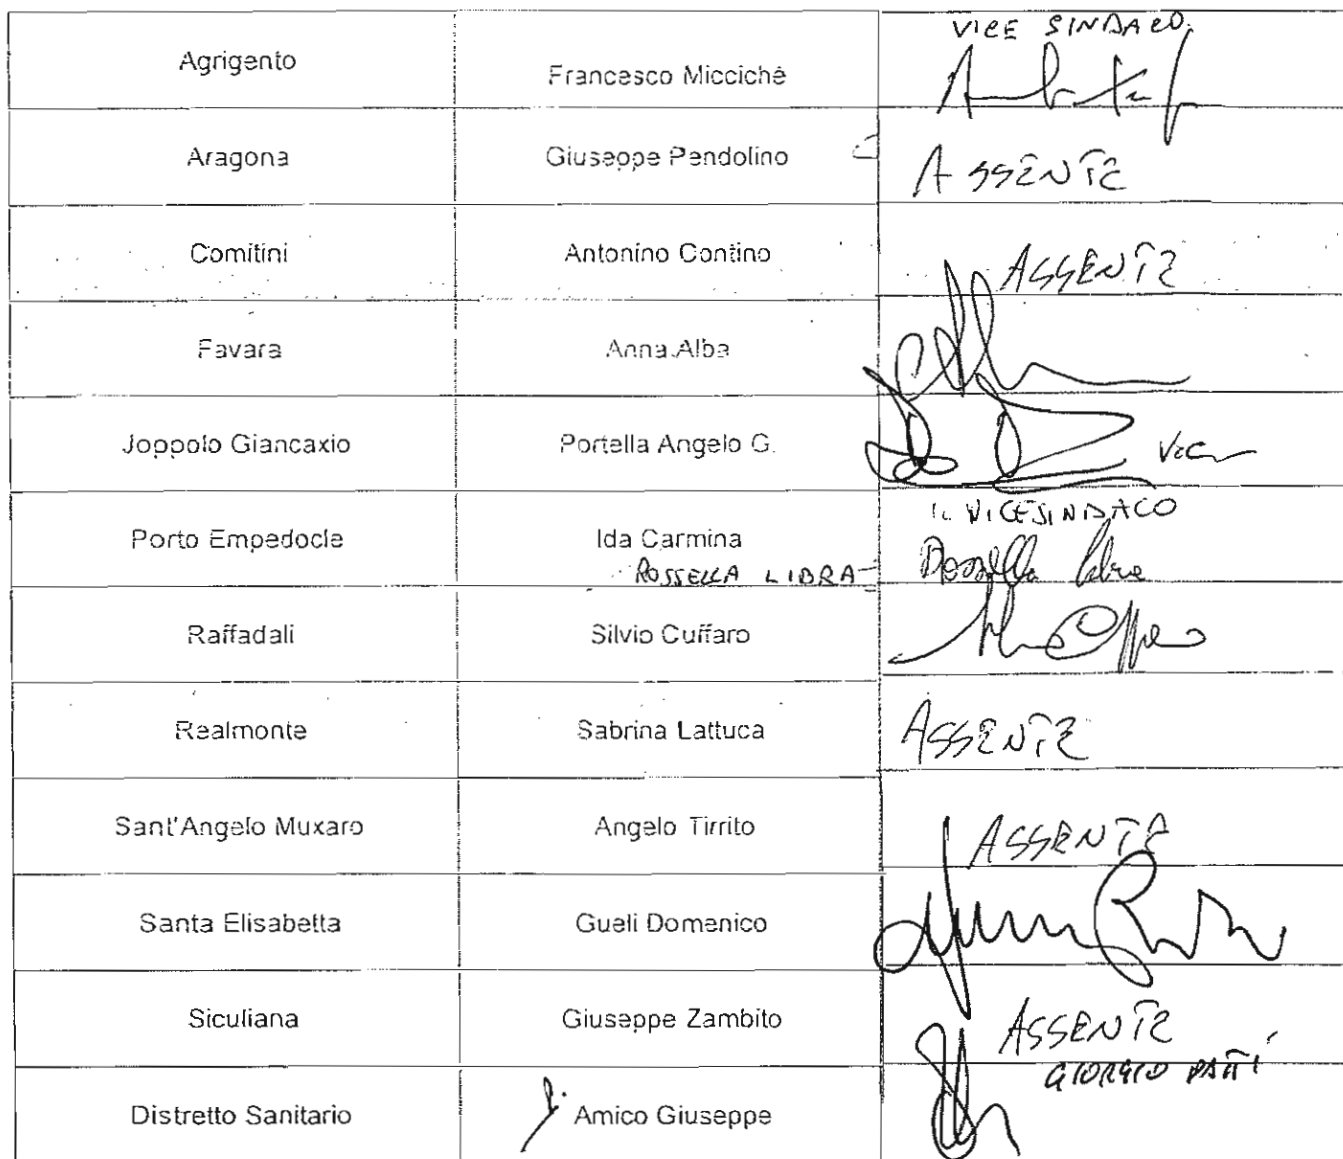 Agrigento
Francesco Miccichè
VICE SINDACO
Aragona
Giuseppe Pendolino
ASSENTE
Comitini
Antonino Contino
ASSENTE
Favara
Anna Alba
Joppolo Giancaxio
Portella Angelo G.
Porto Empedocle
Ida Carmina
ROSSELLA LIBRA
IL VICESINDACO
Rossella Libra
Raffadali
Silvio Cuffaro
Realmonte
Sabrina Lattuca
ASSENTE
Sant'Angelo Muxaro
Angelo Tirrito
ASSENTE
Santa Elisabetta
Gueli Domenico
Siculiana
Giuseppe Zambito
ASSENTE
Distretto Sanitario
Amico Giuseppe
GIORGIO PATTI